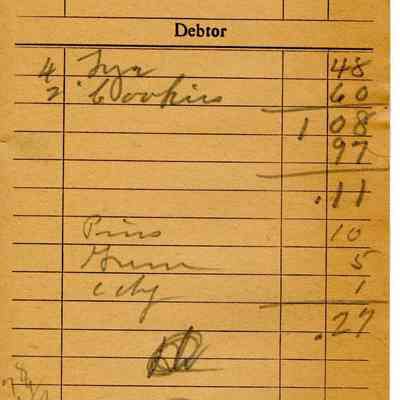 Debtor
4 48
2 Cookies 60
1 08
97
.11
Pins 10
Gum 5
1
.27